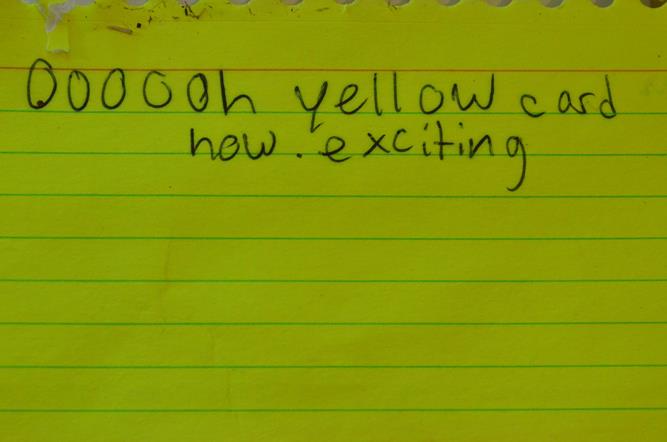 OOOOOh yellow card
how. exciting